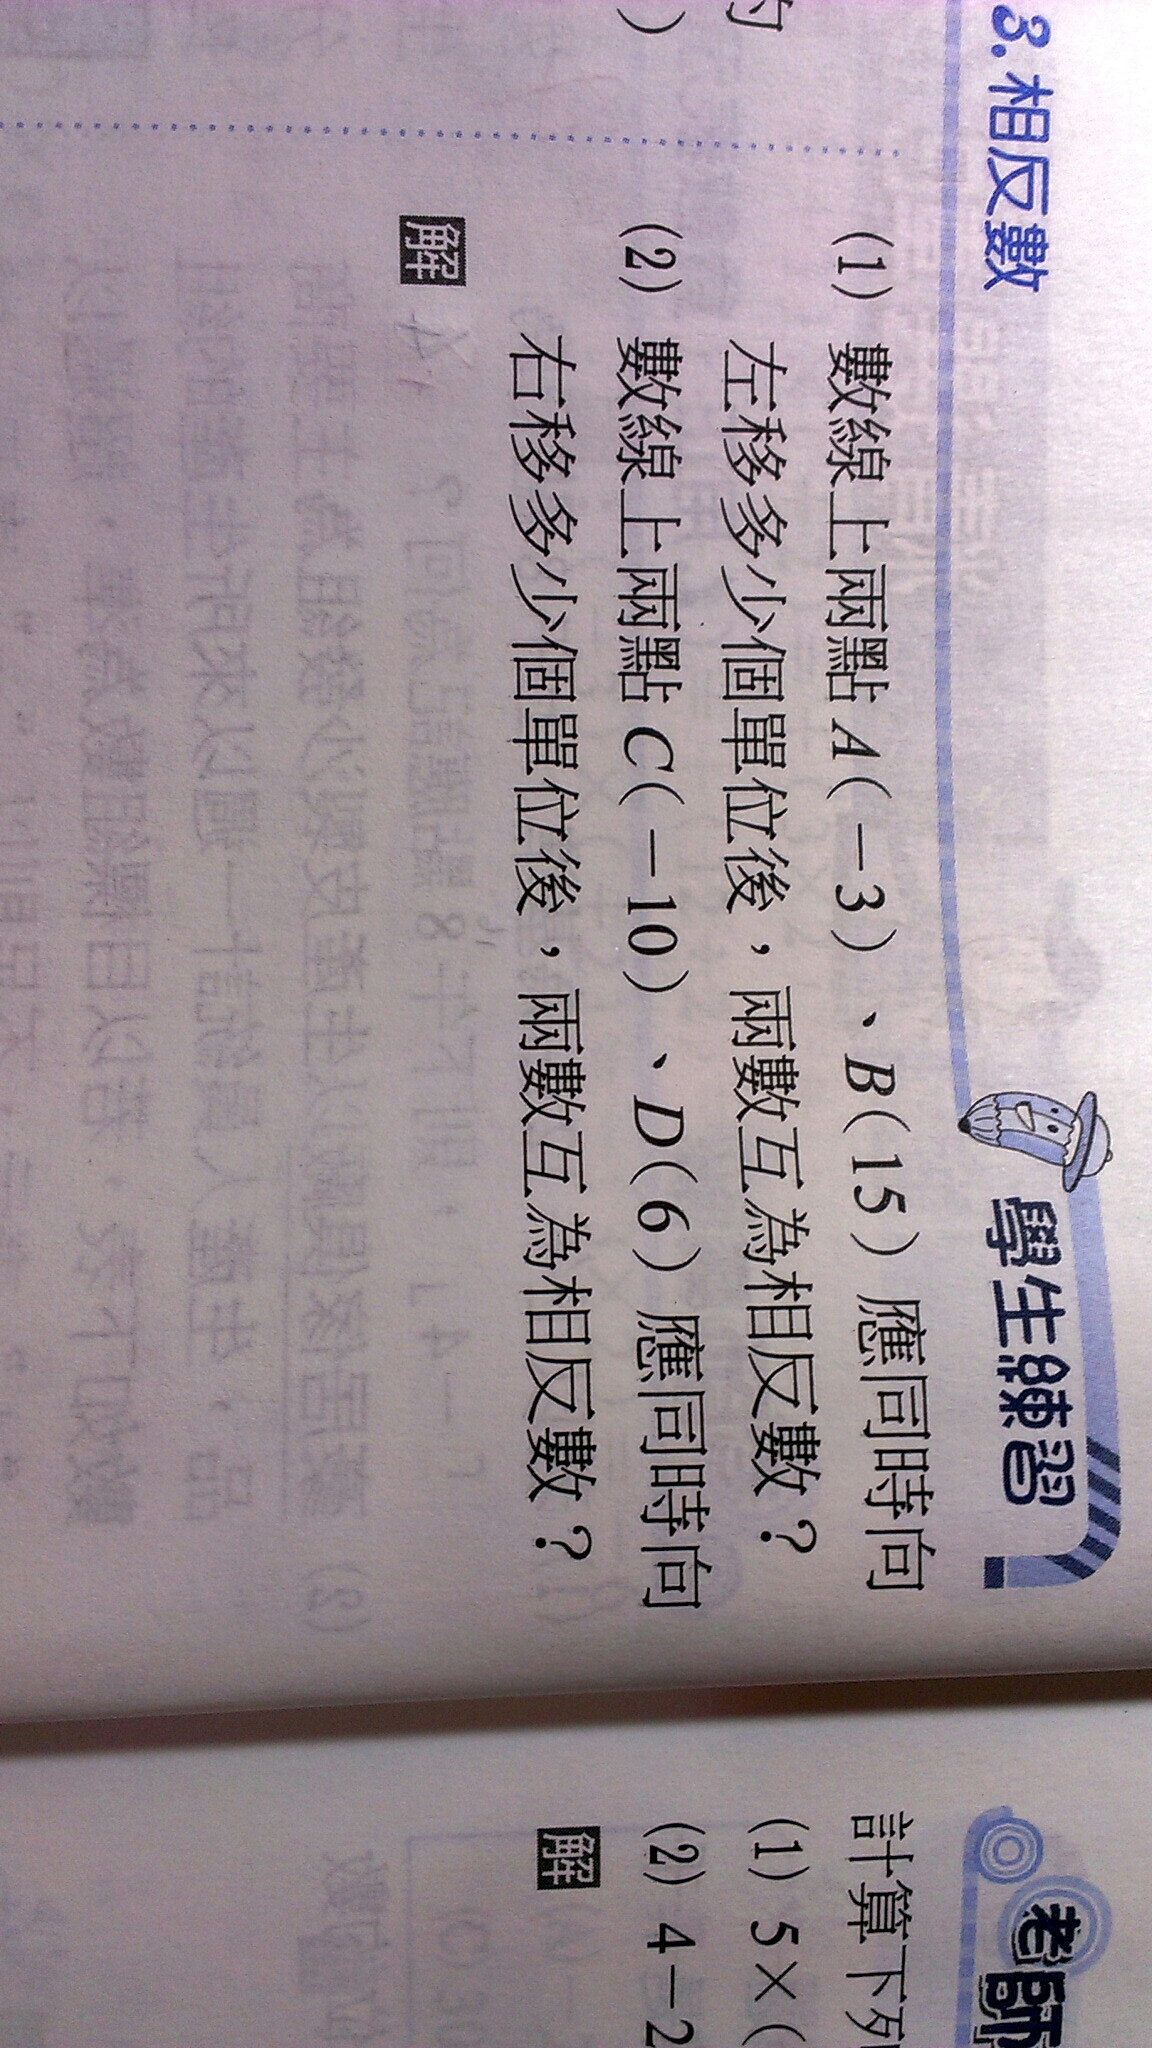 學生練習
3. 相反數
(1) 數線上兩點 A(-3)、B(15) 應同時向
左移多少個單位後，兩數互為相反數？
(2) 數線上兩點 C(-10)、D(6) 應同時向
右移多少個單位後，兩數互為相反數？
解
老師
計算下列
(1) 5×(
(2) 4-2
解